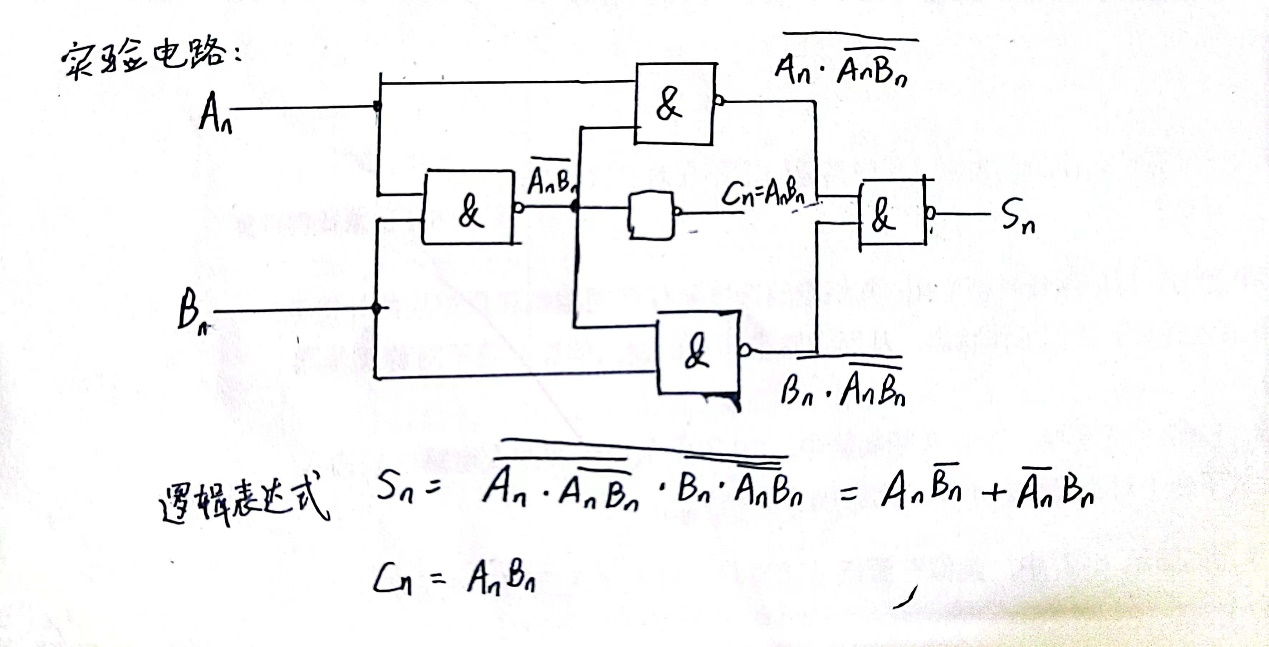 实验电路:
$\overline{A_n \cdot \overline{A_nB_n}}$
A_n
&
$\overline{A_nB_n}$
&
C_n=A_nB_n
&
S_n
B_n
&
$\overline{B_n \cdot \overline{A_nB_n}}$
逻辑表达式 $S_n = \overline{\overline{A_n \cdot \overline{A_nB_n}} \cdot \overline{B_n \cdot \overline{A_nB_n}}} = A_n\overline{B_n} + \overline{A_n}B_n$
C_n = A_nB_n